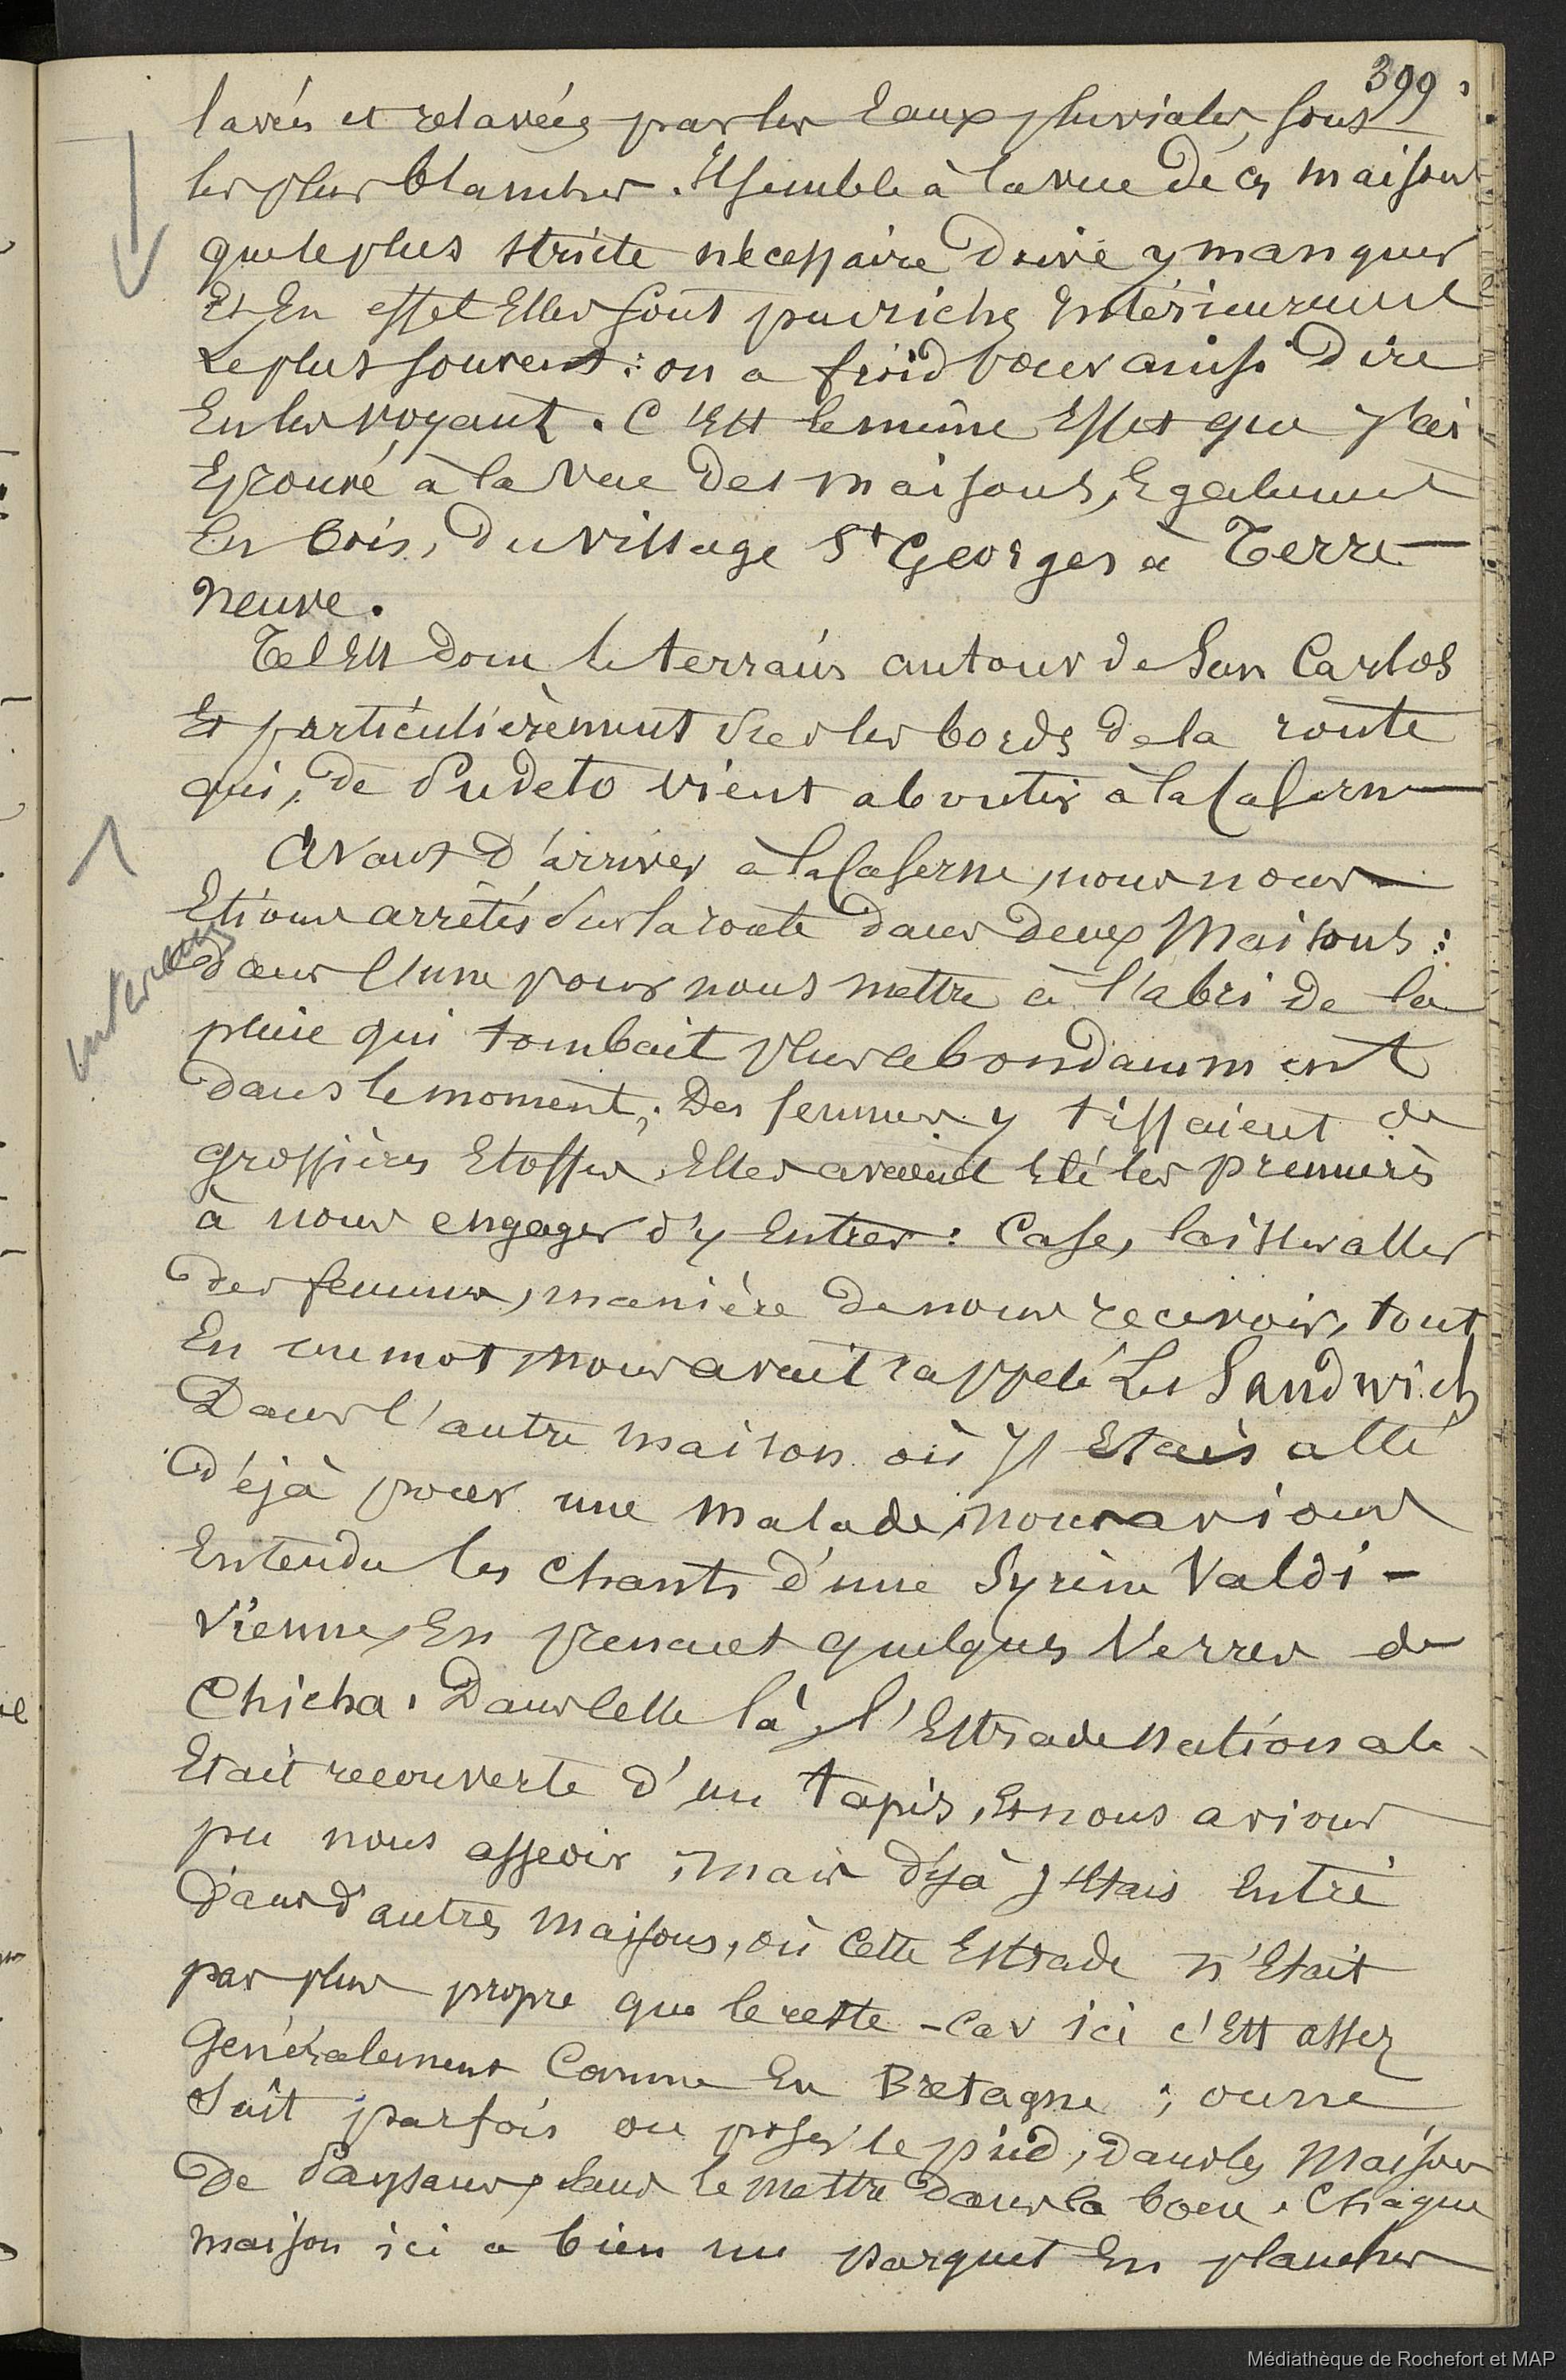 399
lavées et relavées par les Eaux pluviales, sont
les plus blanches. Il semble à la vue de ces maisons
que le plus stricte nécessaire doive y manquer
Et En effet Elles sont peu riches Intérieurement
Le plus souvent: on a froid pour ainsi dire
En les voyant. C'Est le même Effet que j'ai
Eprouvé à la vue des maisons, Egalement
En bois, du village St Georges à Terre-
neuve.
Tel Est donc le terrain autour de San Carlos
Et particulièrement sur les bords de la route
qui, de Pudeto vient aboutir à la Caserne
Avant d'arriver à la Caserne, nous nous
Etions arrêtés sur la route dans deux Maisons:
interieur
dans l'une pour nous mettre à l'abri de la
pluie qui tombait plus abondamment
dans le moment; Des femmes y tissaient de
grossières Etoffes. Elles avaient Eté les premières
à nous engager d'y Entrer: Case, laisser aller
des femmes, manière de nous recevoir, tout
En un mot nous avait rappelé Les Sandwich
Dans l'autre maison où j'Etais allé
déjà pour une malade, nous avions
Entendu les chants d'une Syrène Valdi-
vienne, En prenant quelques Verres de
Chicha. Dans celle là, l'Estrade nationale
Etait recouverte d'un tapis, Et nous avions
pu nous asseoir, mais déjà j'Etais Entré
dans d'autres maisons, où cette Estrade n'Etait
pas plus propre que le reste - car ici c'Est assez
Généralement Comme En Bretagne; on ne
sait parfois ou poser le pied, dans les Maisons
de Paysans, sans le mettre dans la boue. Chaque
maison ici a bien un parquet En planches
Médiathèque de Rochefort et MAP